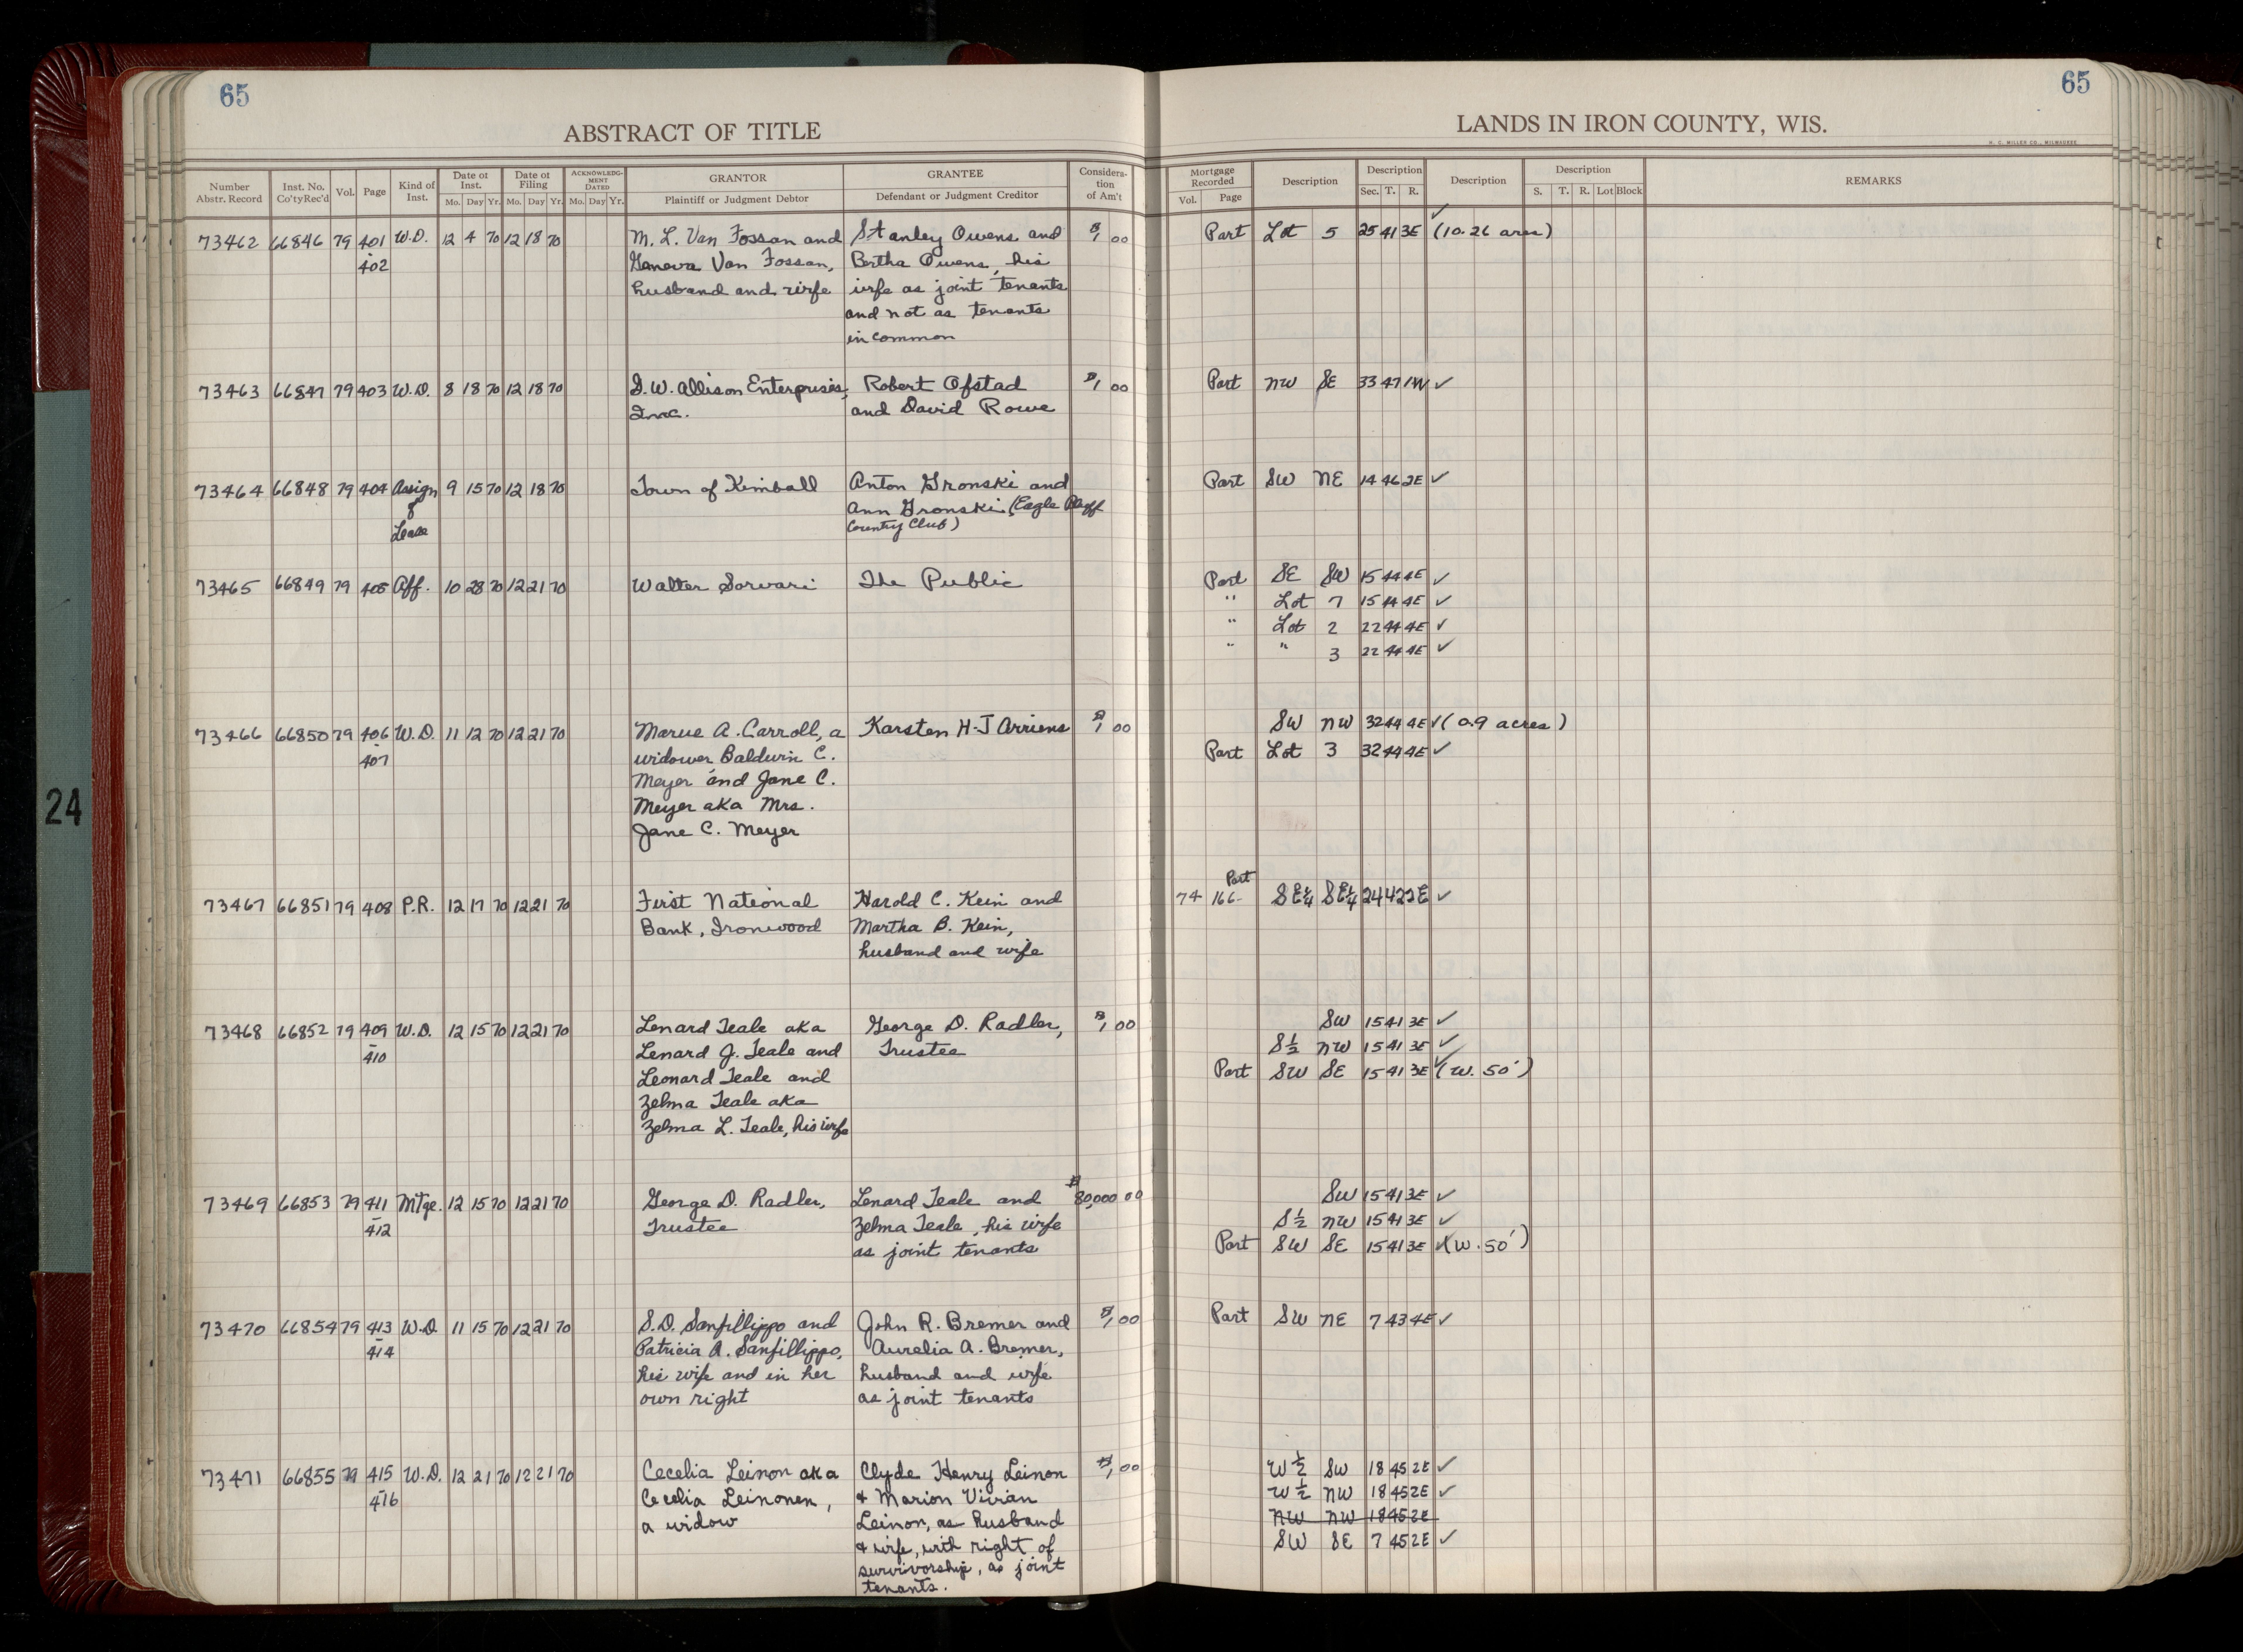 65
65
ABSTRACT OF TITLE
LANDS IN IRON COUNTY, WIS.
H. C. MILLER CO., MILWAUKEE
Number Abstr. Record Inst. No. Co'ty Rec'd Vol. Page Kind of Inst. Date of Inst. Mo. Day Yr. Date of Filing Mo. Day Yr. ACKNOWLEDGMENT DATED Mo. Day Yr. GRANTOR Plaintiff or Judgment Debtor GRANTEE Defendant or Judgment Creditor Consideration of Am't
Mortgage Recorded Vol. Page Description Description Sec. T. R. Description Description S. T. R. Lot Block REMARKS
73462 66846 79 401 W.D. 12 4 70 12 18 70 M. L. Van Fossan and Stanley Owens and $1 00 Part Lot 5 25 41 3E ✓ (10.26 acres)
-402 Geneva Van Fossan, Bertha Owens, his
husband and wife wife as joint tenants
and not as tenants
in common
73463 66847 79 403 W.D. 8 18 70 12 18 70 D.W. Allison Enterprises, Robert Ofstad $1 00 Part NW SE 33 47 1W ✓
Inc. and David Rowe
73464 66848 79 404 Assign 9 15 70 12 18 70 Town of Kimball Anton Gronski and Part SW NE 14 46 2E ✓
of Ann Gronski (Eagle Bluff
Lease Country Club)
73465 66849 79 405 Aff. 10 28 70 12 21 70 Walter Sorvari The Public Part SE SW 15 44 4E ✓
" Lot 7 15 44 4E ✓
" Lot 2 22 44 4E ✓
" " 3 22 44 4E ✓
73466 66850 79 406 W.D. 11 12 70 12 21 70 Marue A. Carroll, a Karsten H-J Arriens $1 00 SW NW 32 44 4E ✓ (0.9 acres)
-407 widower Baldwin C. Part Lot 3 32 44 4E ✓
Meyer and Jane C.
Meyer aka Mrs.
Jane C. Meyer
73467 66851 79 408 P.R. 12 17 70 12 21 70 First National Harold C. Kein and 74 166- Part SE¼ SE¼ 24 42 2E ✓
Bank, Ironwood Martha B. Kein,
husband and wife
73468 66852 79 409 W.D. 12 15 70 12 21 70 Lenard Teale aka George D. Radler, $1 00 SW 15 41 3E ✓
-410 Lenard J. Teale and Trustee S½ NW 15 41 3E ✓
Leonard Teale and Part SW SE 15 41 3E ✓ (W. 50')
Zelma Teale aka
Zelma L. Teale, his wife
73469 66853 79 411 Mtge. 12 15 70 12 21 70 George D. Radler, Lenard Teale and $80,000 00 SW 15 41 3E ✓
-412 Trustee Zelma Teale, his wife S½ NW 15 41 3E ✓
as joint tenants Part SW SE 15 41 3E ✓ (W. 50')
73470 66854 79 413 W.D. 11 15 70 12 21 70 S.D. Sanfillippo and John R. Bremer and $1 00 Part SW NE 7 43 4E ✓
-414 Patricia A. Sanfillippo, Aurelia A. Bremer,
his wife and in her husband and wife
own right as joint tenants
73471 66855 79 415 W.D. 12 21 70 12 21 70 Cecelia Leinon aka Clyde Henry Leinon $1 00 W½ SW 18 45 2E ✓
-416 Cecelia Leinonen, & Marion Vivian W½ NW 18 45 2E ✓
a widow Leinon, as husband NW NW 18 45 2E
& wife, with right of SW SE 7 45 2E ✓
survivorship, as joint
tenants.
24